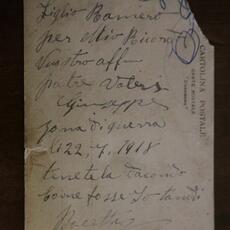 figlio Ramiero
per Mio Ricord
Vostro aff
patre Valeri
Giuseppe
zona di guerra
li 22, 7, 1918
tenetela da conto
Come fosse Io tanti
CARTOLINA POSTALE